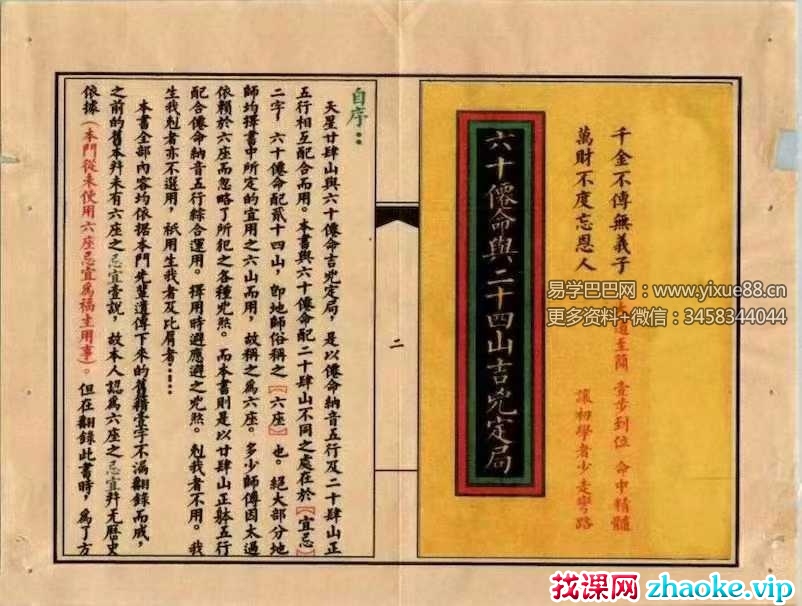 千金不傳無義子
萬財不度忘恩人
六十僊命與二十四山吉兇定局
至簡 壹步到位 命中精髓
讓初學者少走彎路
易学巴巴网:www.yixue88.cn
更多资料+微信:3458344044
二
自序:
天星廿肆山與六十僊命吉兇定局,是以僊命納音五行及二十肆山正
五行相互配合而用。本書與六十僊命配二十肆山不同之處在於【宜忌】
二字,六十僊命配貳十四山,即地師俗稱之【六座】也。絕大部分地
師均擇書中所定的宜用之六山而用,故稱之為六座。多少師傅因太過
依賴於六座而忽略了所犯之各種兇煞。而本書則是以廿肆山正躰五行
配合僊命納音五行綜合運用。擇用時避應避之兇煞。剋我者不用。我
生我剋者亦不選用,祇用生我者及比肩者……
本書全部內容均依据本門先輩遺傳下來的舊籍壹字不漏翻錄而成,
之前的舊本幷未有六座之忌宜壹說,故本人認為六座之忌宜幷无歷史
依據(本門從未使用六座忌宜為福主用事)。但在翻錄此書時,為了方
找课网 zhaoke.vip